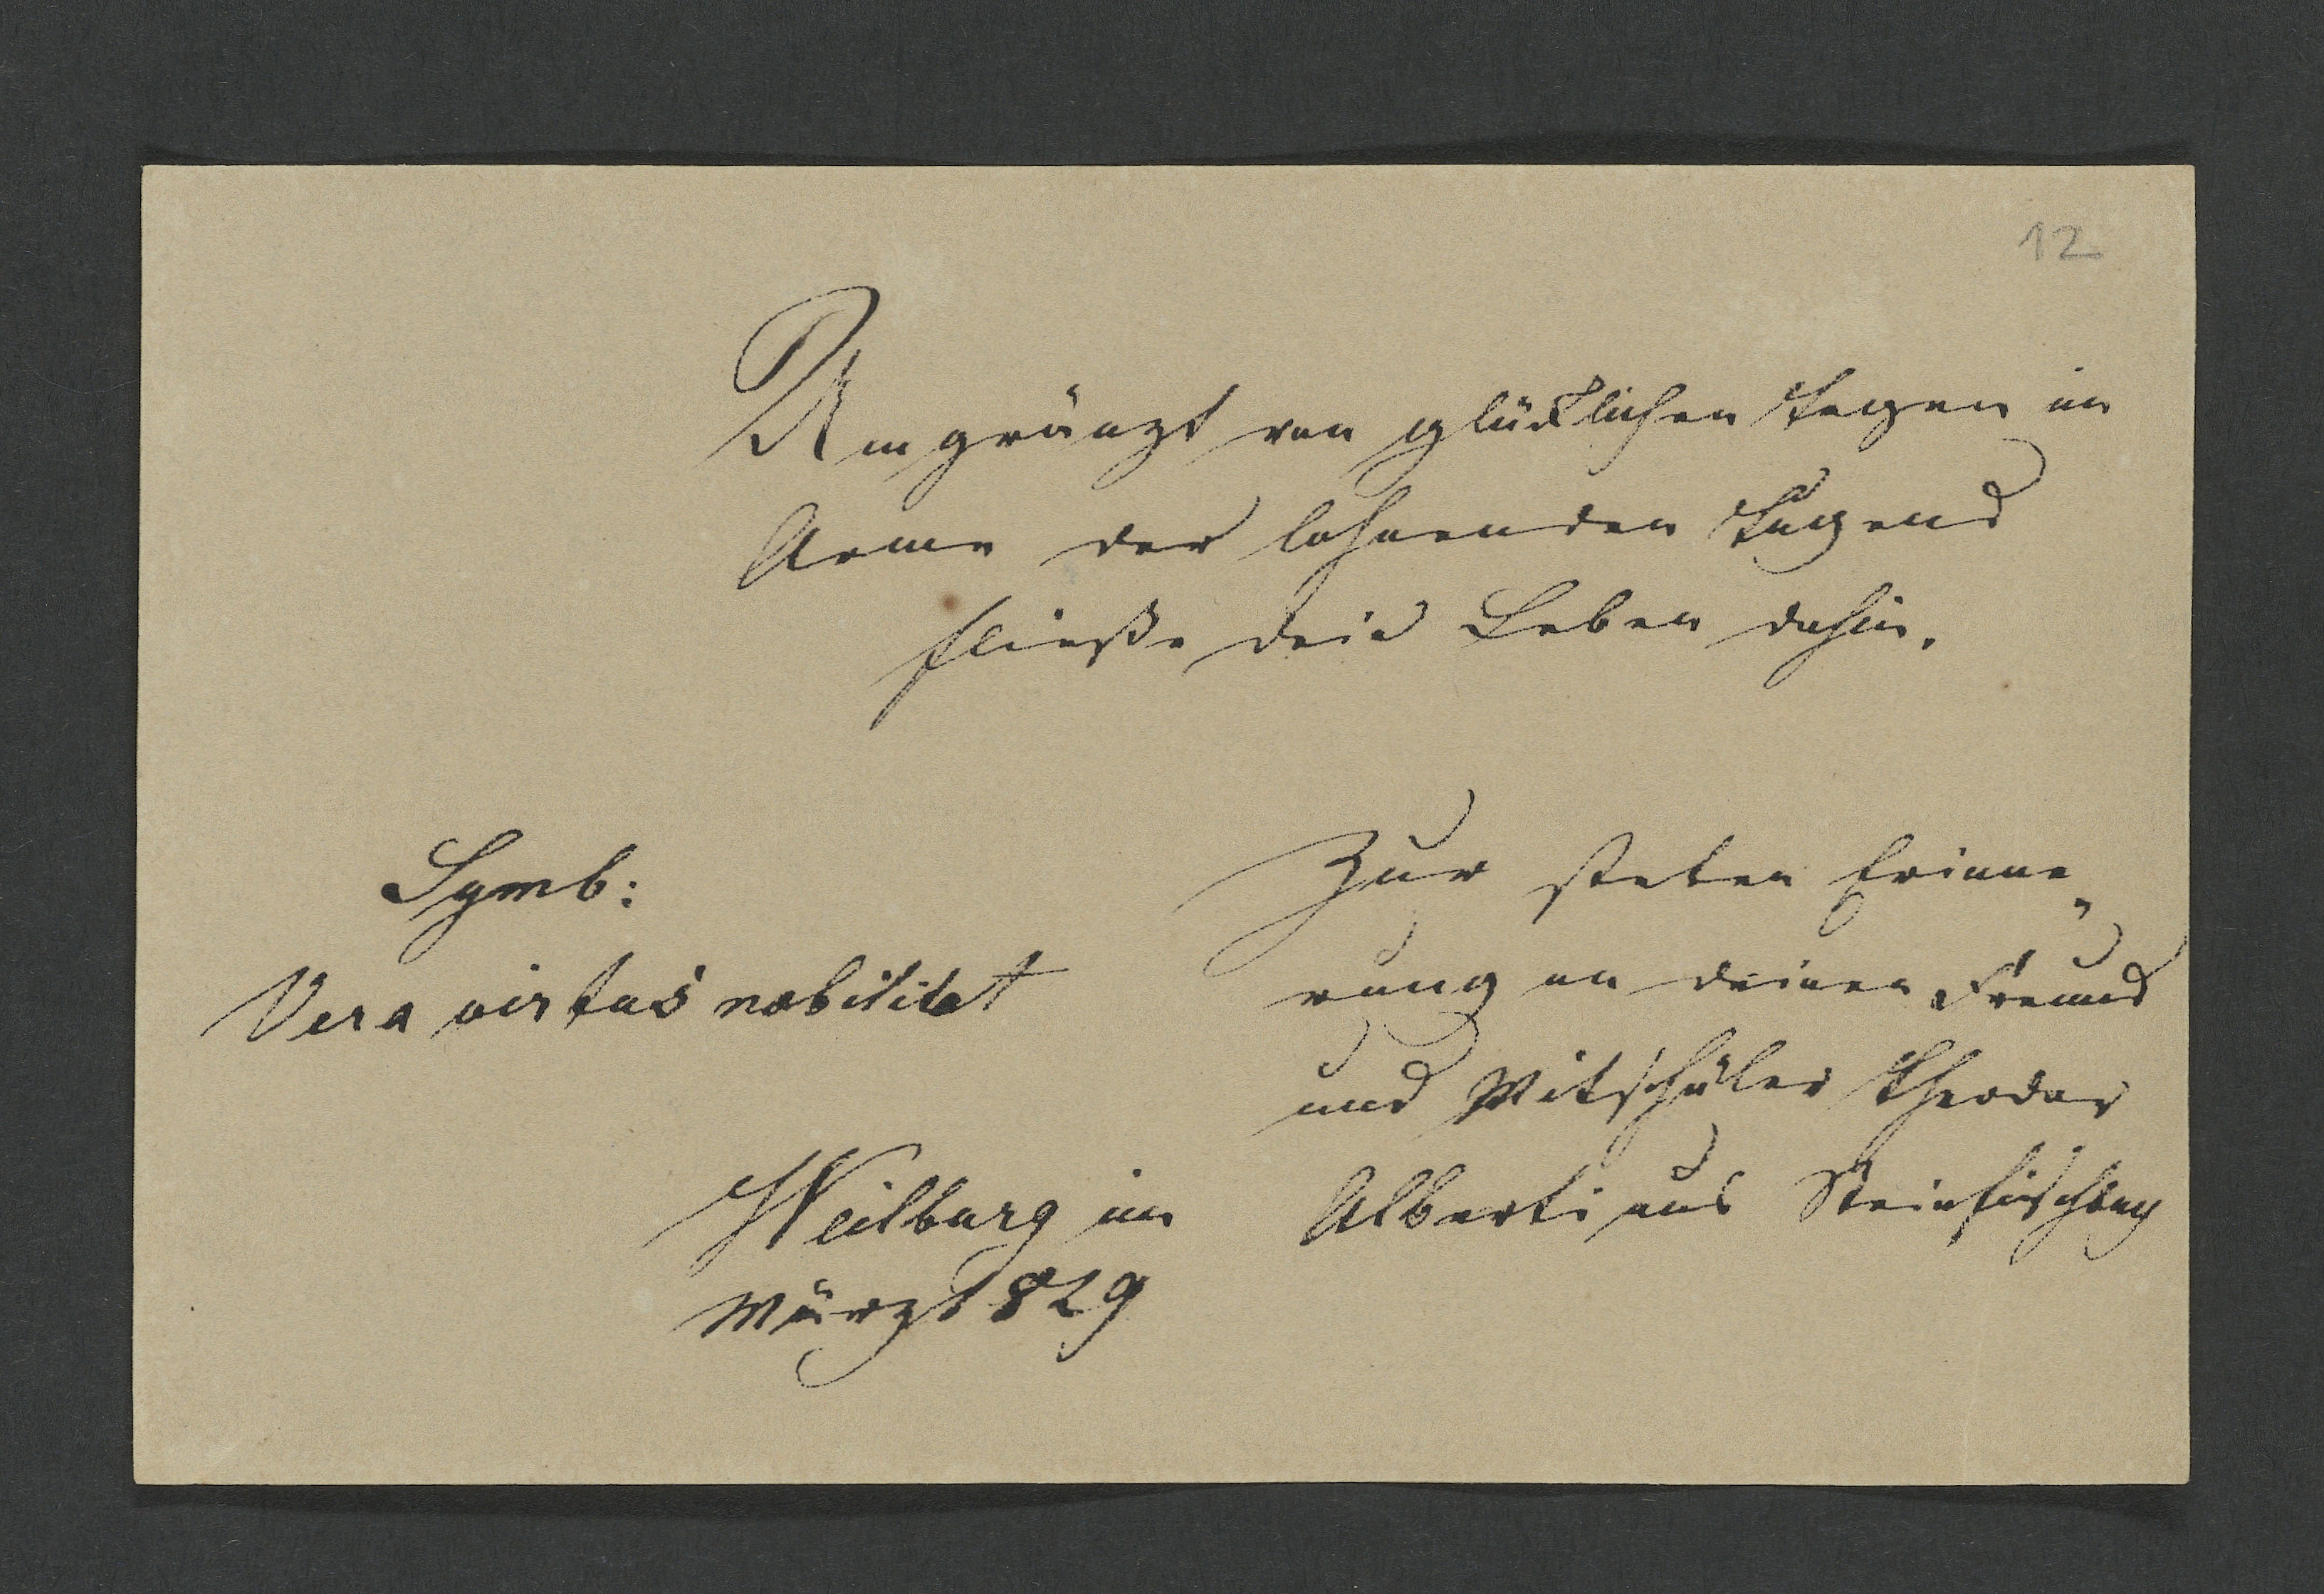 12
Umgränzt von glücklichen Tagen im
Arme der lohnenden Tugend
fließe dein Leben dahin.
Symb:
Vera virtus nobilitat
Zur steten Erinne„
rung an deinen Freund
und Mitschüler Theodor
Alberti aus Steinfischbach
Weilburg im
März 1829